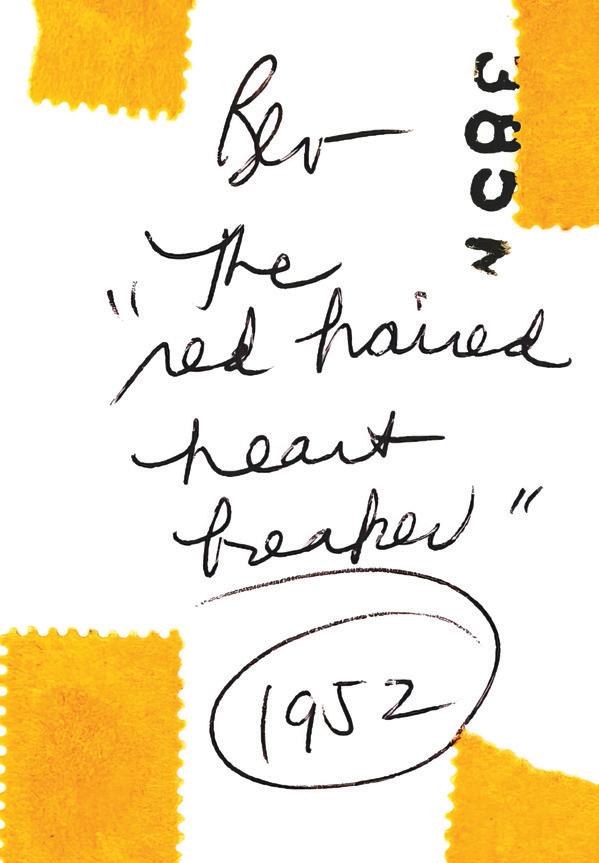 Bev—
The
"red haired
heart
breaker"
1952